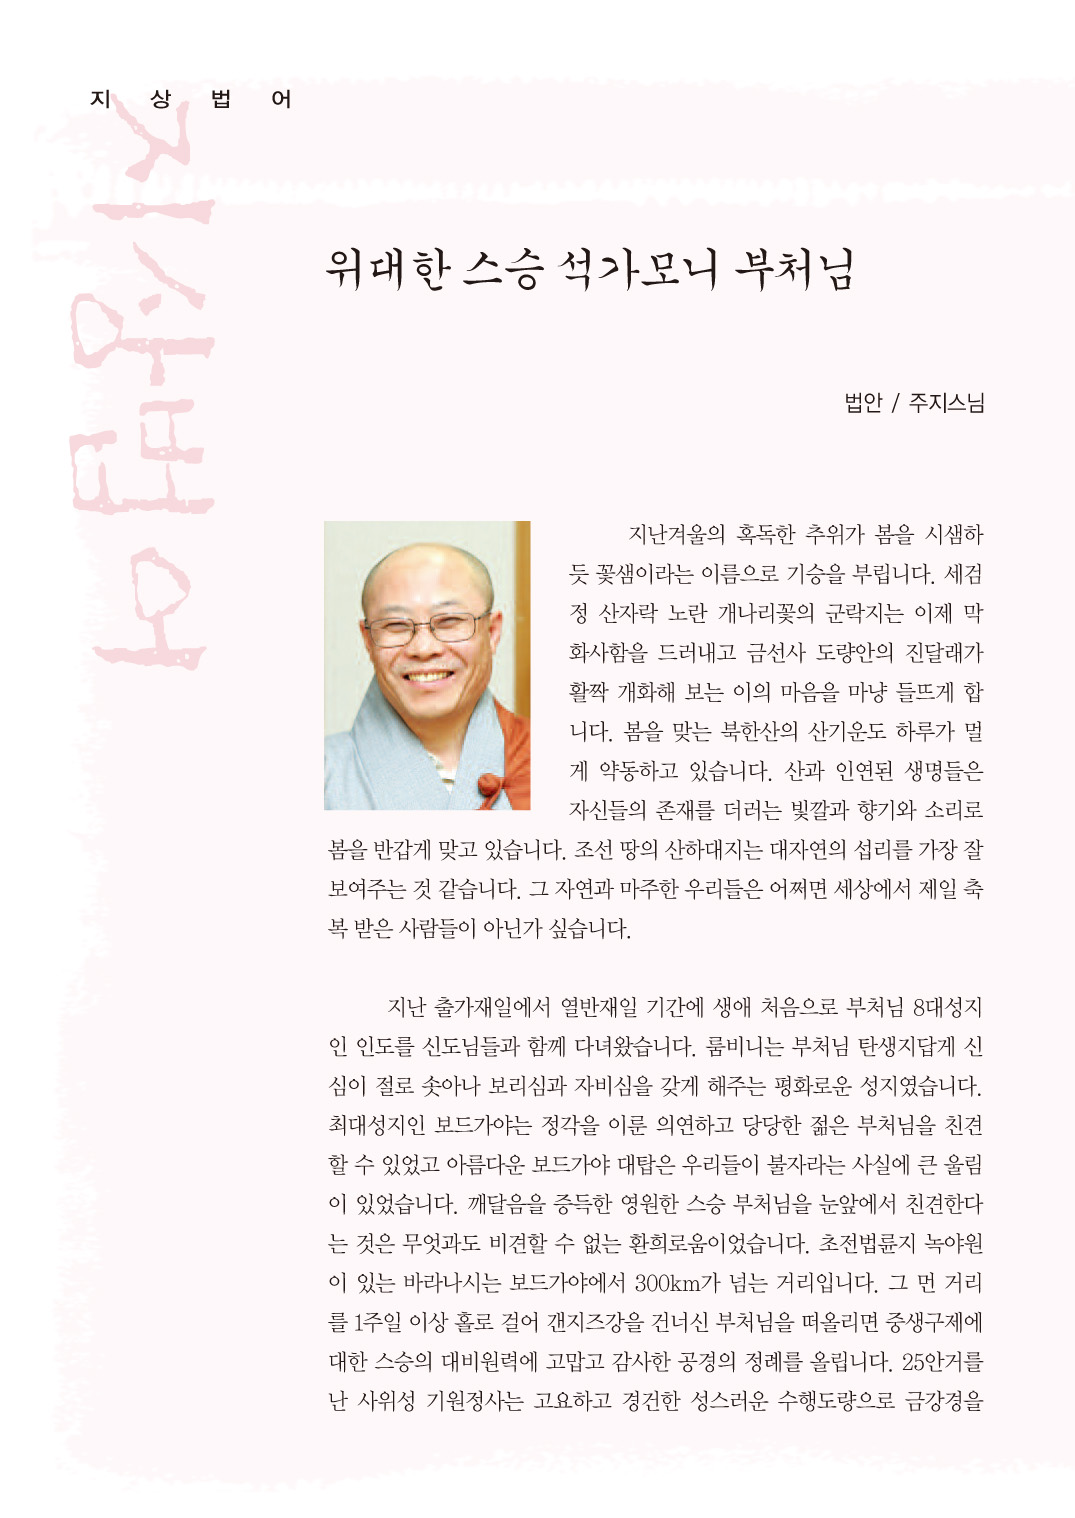 지 상 법 어
지상법어
위대한 스승 석가모니 부처님
법안 / 주지스님
지난겨울의 혹독한 추위가 봄을 시샘하
듯 꽃샘이라는 이름으로 기승을 부립니다. 세검
정 산자락 노란 개나리꽃의 군락지는 이제 막
화사함을 드러내고 금선사 도량안의 진달래가
활짝 개화해 보는 이의 마음을 마냥 들뜨게 합
니다. 봄을 맞는 북한산의 산기운도 하루가 멀
게 약동하고 있습니다. 산과 인연된 생명들은
자신들의 존재를 더러는 빛깔과 향기와 소리로
봄을 반갑게 맞고 있습니다. 조선 땅의 산하대지는 대자연의 섭리를 가장 잘
보여주는 것 같습니다. 그 자연과 마주한 우리들은 어쩌면 세상에서 제일 축
복 받은 사람들이 아닌가 싶습니다.
지난 출가재일에서 열반재일 기간에 생애 처음으로 부처님 8대성지
인 인도를 신도님들과 함께 다녀왔습니다. 룸비니는 부처님 탄생지답게 신
심이 절로 솟아나 보리심과 자비심을 갖게 해주는 평화로운 성지였습니다.
최대성지인 보드가야는 정각을 이룬 의연하고 당당한 젊은 부처님을 친견
할 수 있었고 아름다운 보드가야 대탑은 우리들이 불자라는 사실에 큰 울림
이 있었습니다. 깨달음을 증득한 영원한 스승 부처님을 눈앞에서 친견한다
는 것은 무엇과도 비견할 수 없는 환희로움이었습니다. 초전법륜지 녹야원
이 있는 바라나시는 보드가야에서 300km가 넘는 거리입니다. 그 먼 거리
를 1주일 이상 홀로 걸어 갠지즈강을 건너신 부처님을 떠올리면 중생구제에
대한 스승의 대비원력에 고맙고 감사한 공경의 정례를 올립니다. 25안거를
난 사위성 기원정사는 고요하고 경건한 성스러운 수행도량으로 금강경을